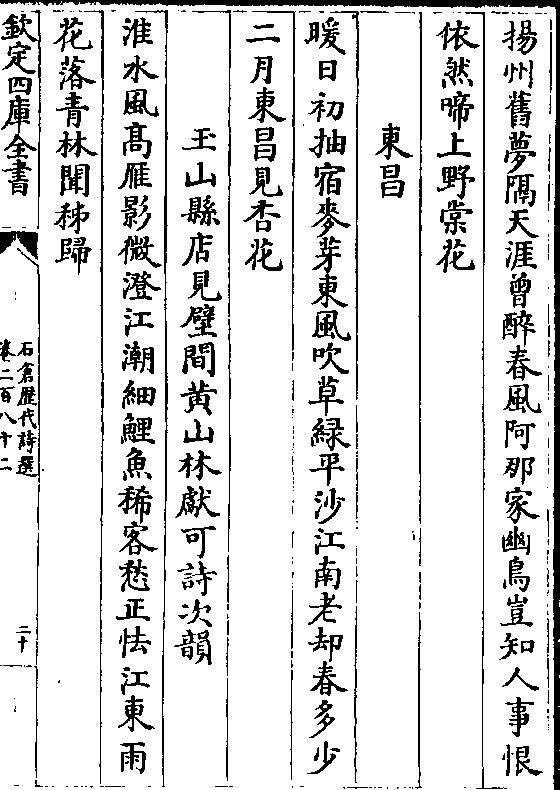 揚州舊夢隔天涯曾醉春風阿那家幽鳥豈知人事恨
依然啼上野棠花
東昌
暖日初抽宿麥芽東風吹草緑平沙江南老却春多少
二月東昌見杏花
玉山縣店見壁間黄山林獻可詩次韻
淮水風高雁影微澄江潮細鯉魚稀客愁正怯江東雨
花落青林聞秭歸
欽定四庫全書
石倉歷代詩選
卷二百八十二
二十